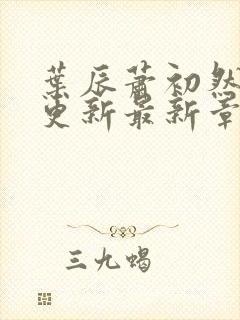 葉辰蕭初然
更新最新章
三九蝎